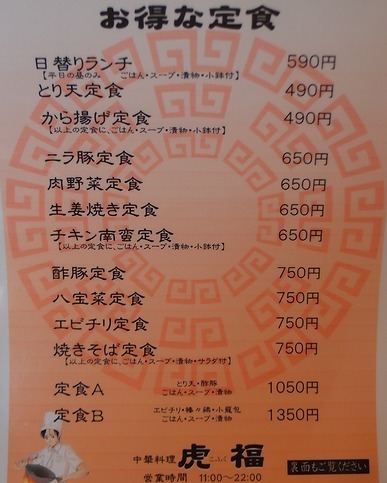 お得な定食
日替りランチ 590円
【平日の昼のみ ごはん・スープ・漬物・小鉢付】
とり天定食 490円
から揚げ定食 490円
【以上の定食に、ごはん・スープ・漬物・小鉢付】
ニラ豚定食 650円
肉野菜定食 650円
生姜焼き定食 650円
チキン南蛮定食 650円
【以上の定食に、ごはん・スープ・漬物・小鉢付】
酢豚定食 750円
八宝菜定食 750円
エビチリ定食 750円
焼きそば定食 750円
【以上の定食に、ごはん・スープ・漬物・サラダ付】
定食A とり天・酢豚 1050円
ごはん・スープ・漬物
定食B エビチリ・棒々鶏・小籠包 1350円
ごはん・スープ・漬物
中華料理 虎福 こふく
営業時間 11:00〜22:00
裏面もご覧ください